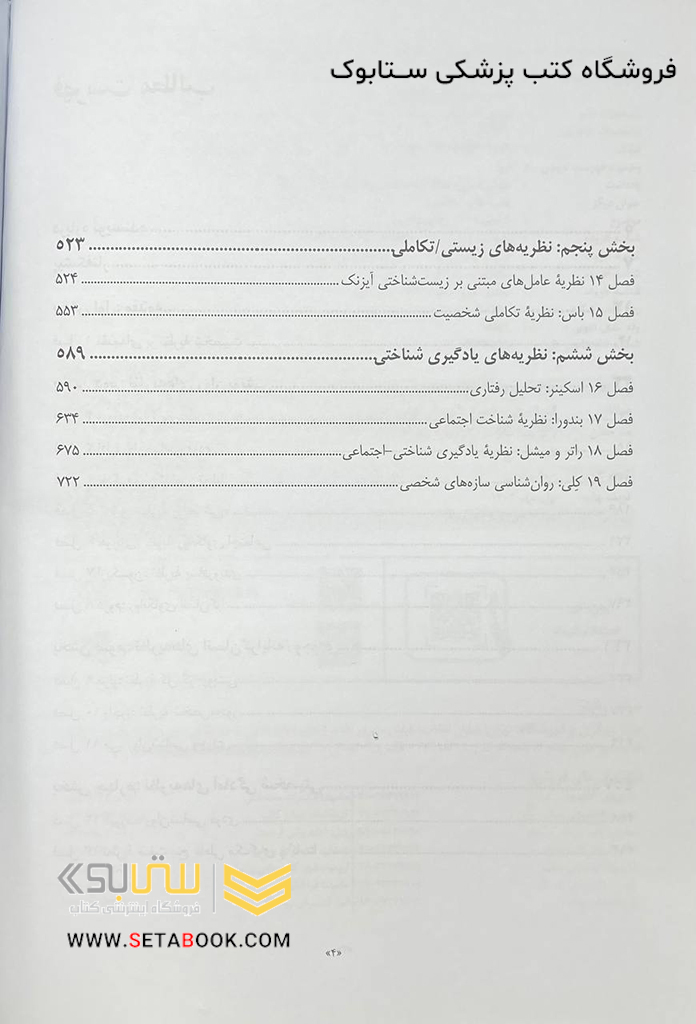 فروشگاه کتب پزشکی ستابوک
بخش پنجم: نظریه‌های زیستی/تکاملی ........................................................................ ۵۲۳
فصل ۱۴ نظریهٔ عامل‌های مبتنی بر زیست‌شناختی آیزنک ........................................................................ ۵۲۴
فصل ۱۵ باس: نظریهٔ تکاملی شخصیت ........................................................................ ۵۵۳
بخش ششم: نظریه‌های یادگیری شناختی ........................................................................ ۵۸۹
فصل ۱۶ اسکینر: تحلیل رفتاری ........................................................................ ۵۹۰
فصل ۱۷ بندورا: نظریهٔ شناخت اجتماعی ........................................................................ ۶۳۴
فصل ۱۸ راتر و میشل: نظریهٔ یادگیری شناختی-اجتماعی ........................................................................ ۶۷۵
فصل ۱۹ کِلی: روان‌شناسی سازه‌های شخصی ........................................................................ ۷۲۲
ستابوک
فروشگاه اینترنتی کتاب
WWW.SETABOOK.COM
«۴»